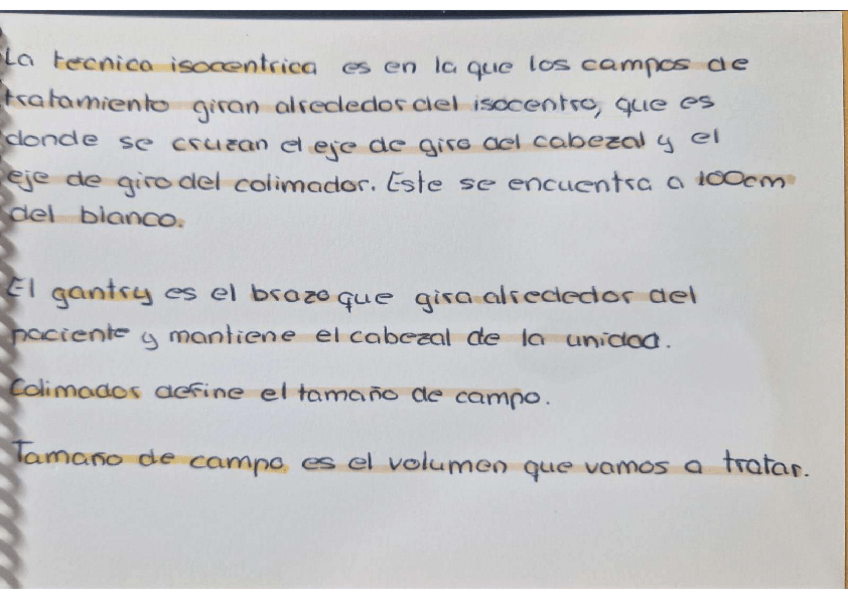 La tecnica isocentrica es en la que los campos de
tratamiento giran alrededor del isocentro, que es
donde se cruzan el eje de giro del cabezal y el
eje de giro del colimador. Este se encuentra a 100cm
del blanco.
El gantry es el brazo que gira alrededor del
paciente y mantiene el cabezal de la unidad.
Colimador define el tamaño de campo.
Tamaño de campo es el volumen que vamos a tratar.